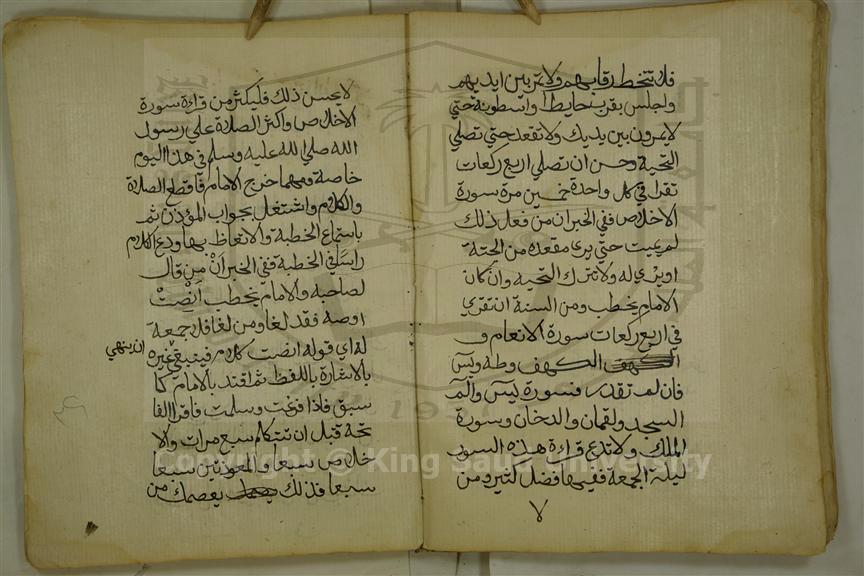 فلا تتخط رقابهم ولا تمر بين ايديهم
واجلس بقرب حايط او اسطوانة حتي
لا يمرون بين يديك ولا تقعد حتي تصلي
التحية وحسن ان تصلي اربع ركعات
تقرا في كل واحدة خمسين مرة سورة
الاخلاص ففي الخبر ان من فعل ذلك
لم يمت حتي يري مقعده من الجنة
او يري له ولا تترك التحيه وان كان
الامام يخطب ومن السنة ان تقري
في اربع ركعات سورة الانعام و
الكهف الكهف وطه ويس
فان لم تقدر فسورة يس والم
السجد ولقمان والدخان وسورة
الملك ولا تدع قراءة هذه السور
ليلة الجمعة ففيها فضل كثير ومن
٧
لا يحسن ذلك فليكثر من قراءة سورة
الاخلاص واكثر الصلاة علي رسول
الله صلي الله عليه وسلم في هذا اليوم
خاصة ومهما خرج الامام فاقطع الصلاة
والكلام واشتغل بجواب المؤذن ثم
باستماع الخطبة والاتعاظ بها ودع الكلام
راسا في الخطبة ففي الخبر ان من قال
لصاحبه والامام يخطب انصت
او صه فقد لغا ومن لغا فلا جمعة
له اي قوله انصت كلام فينبغي غيره
ان ينهي
بالاشارة باللفظ ثم اقتد بالامام كما
سبق فاذا فرغت وسلمت فاقرا الفا
تحة قبل ان تتكلم سبع مرات والا
خلاص سبعا والمعوذتين سبعا
سبعا فذلك يعصمك من
Copyright © King Saud University
1957